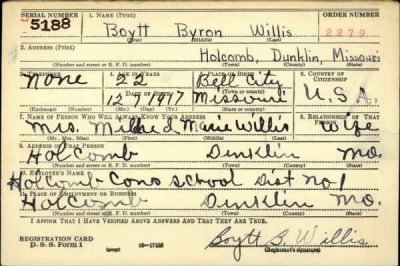 SERIAL NUMBER 1. NAME (Print) ORDER NUMBER
5188 Boytt Byron Willis 2279
(First) (Middle) (Last)
2. ADDRESS (Print)
Holcomb, Dunklin, Missouri
(Number and street or R. F. D. number) (Town) (County) (State)
3. TELEPHONE 4. AGE IN YEARS 5. PLACE OF BIRTH 6. COUNTRY OF CITIZENSHIP
None 22 Bell City
DATE OF BIRTH (Town or county)
12 1917 Missouri U.S.A.
(Exchange) (Number) (Mo.) (Day) (Yr.) (State or country)
7. NAME OF PERSON WHO WILL ALWAYS KNOW YOUR ADDRESS 8. RELATIONSHIP OF THAT PERSON
Mrs. Mildred Marie Willis Wife
(Mr., Mrs., Miss) (First) (Middle) (Last)
9. ADDRESS OF THAT PERSON
Holcomb Dunklin Mo.
(Number and street or R. F. D. number) (Town) (County) (State)
10. EMPLOYER'S NAME
Holcomb Cons School Dist No. 1
11. PLACE OF EMPLOYMENT OR BUSINESS
Holcomb Dunklin Mo.
(Number and street or R. F. D. number) (Town) (County) (State)
I AFFIRM THAT I HAVE VERIFIED ABOVE ANSWERS AND THAT THEY ARE TRUE.
REGISTRATION CARD
D. S. S. FORM 1 Boytt B. Willis
(over) (Registrant's signature)